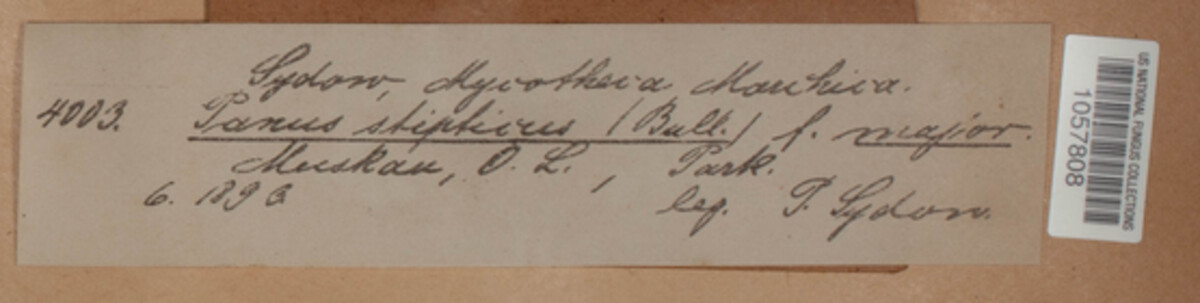 Sydow, Mycotheca Marchica.
4003. Panus stipticus (Bull.) f. major.
Muskau, O. L., Park.
6. 1893 leg. P. Sydow.
US NATIONAL FUNGUS COLLECTIONS
1057808